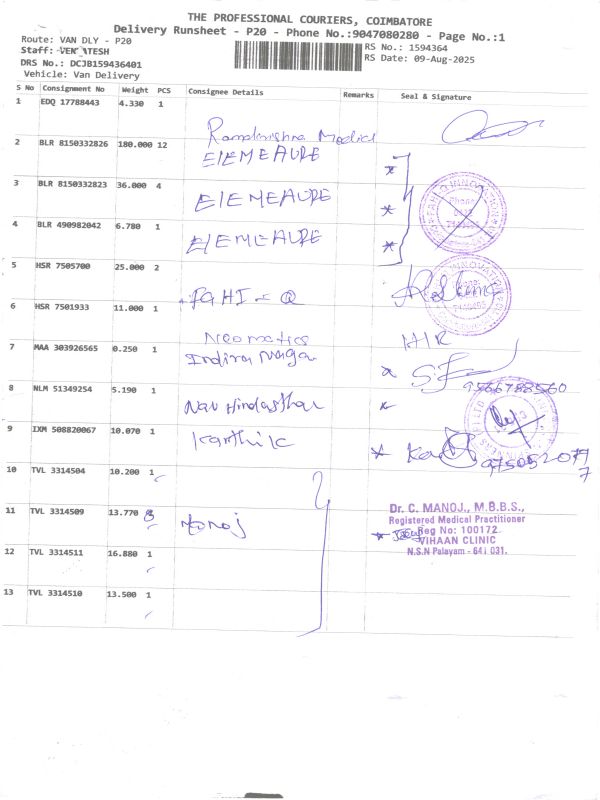 THE PROFESSIONAL COURIERS, COIMBATORE
Delivery Runsheet - P20 - Phone No.:9047080280 - Page No.:1
Route: VAN DLY - P20
RS No.: 1594364
Staff: VENKATESH
RS Date: 09-Aug-2025
DRS No.: DCJB159436401
Vehicle: Van Delivery
S No Consignment No Weight PCS Consignee Details Remarks Seal & Signature
1 EDQ 17788443 4.330 1
Ramakrishna Medical
2 BLR 8150332826 180.000 12
ELEMEAURE
3 BLR 8150332823 36.000 4
ELEMEAURE
4 BLR 490982042 6.780 1
ELEMEAURE
5 HSR 7505700 25.000 2
FAHI-Q
6 HSR 7501933 11.000 1
Neomatics
7 MAA 303926565 0.250 1
Indira Naga
9566788560
8 NLM 51349254 5.190 1
Nav Hindasthan
9 IXM 508820067 10.070 1
Karthik
10 TVL 3314504 10.200 1
11 TVL 3314509 13.770 8
Manoj
Dr. C. MANOJ., M.B.B.S.,
Registered Medical Practitioner
Reg No: 100172
VIHAAN CLINIC
N.S.N Palayam - 641 031.
12 TVL 3314511 16.880 1
13 TVL 3314510 13.500 1